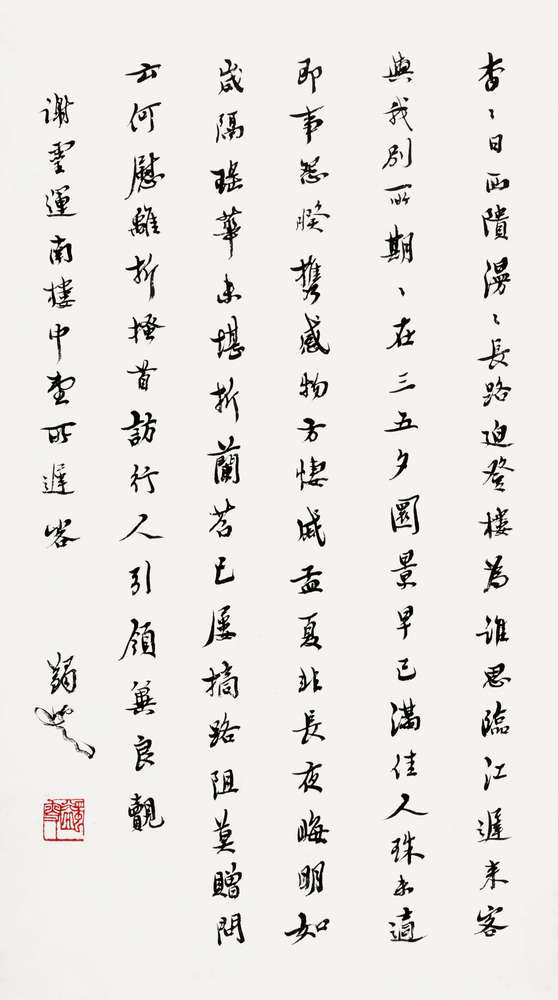 杳〻日西隤漫〻長路迫登樓為誰思臨江遲来客
與我別所期〻在三五夕圓景早已滿佳人殊未適
即事怨睽攜感物方悽戚孟夏非長夜晦明如
歲隔瑤華未堪折蘭苕已屢摘路阻莫贈問
云何慰離析搔首訪行人引領冀良覿
謝靈運南樓中望所遲客